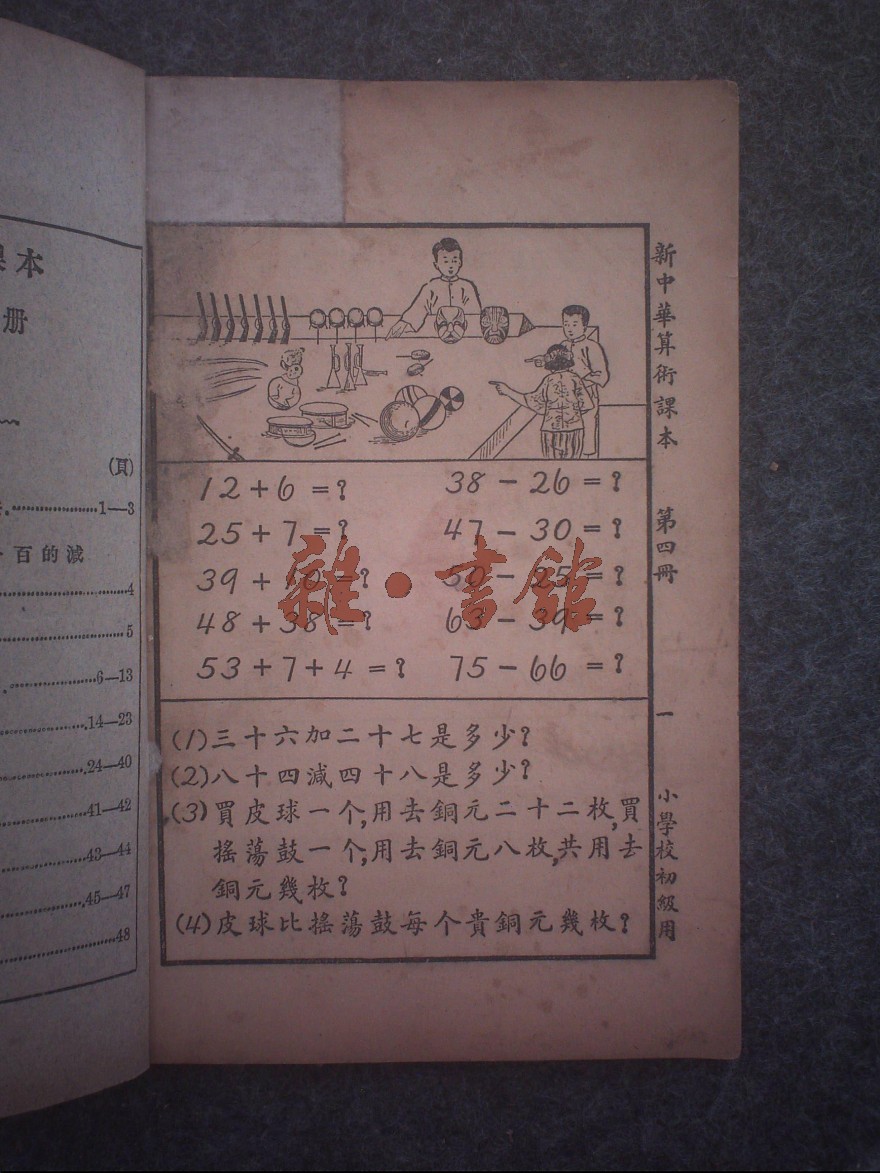 課本
册
(頁)
1—3
百的減
4
5
6—13
14—23
24—40
41—42
43—44
45—47
48
12+6=?
38-26=?
25+7=?
47-30=?
39+ 0=?
50-25=?
48+38=?
63-39=?
53+7+4=?
75-66=?
雜·書館
(1)三十六加二十七是多少?
(2)八十四減四十八是多少?
(3)買皮球一个,用去銅元二十二枚,買
搖蕩鼓一个,用去銅元八枚,共用去
銅元幾枚?
(4)皮球比搖蕩鼓每个貴銅元幾枚?
新中華算術課本 第四冊 一 小學校初級用